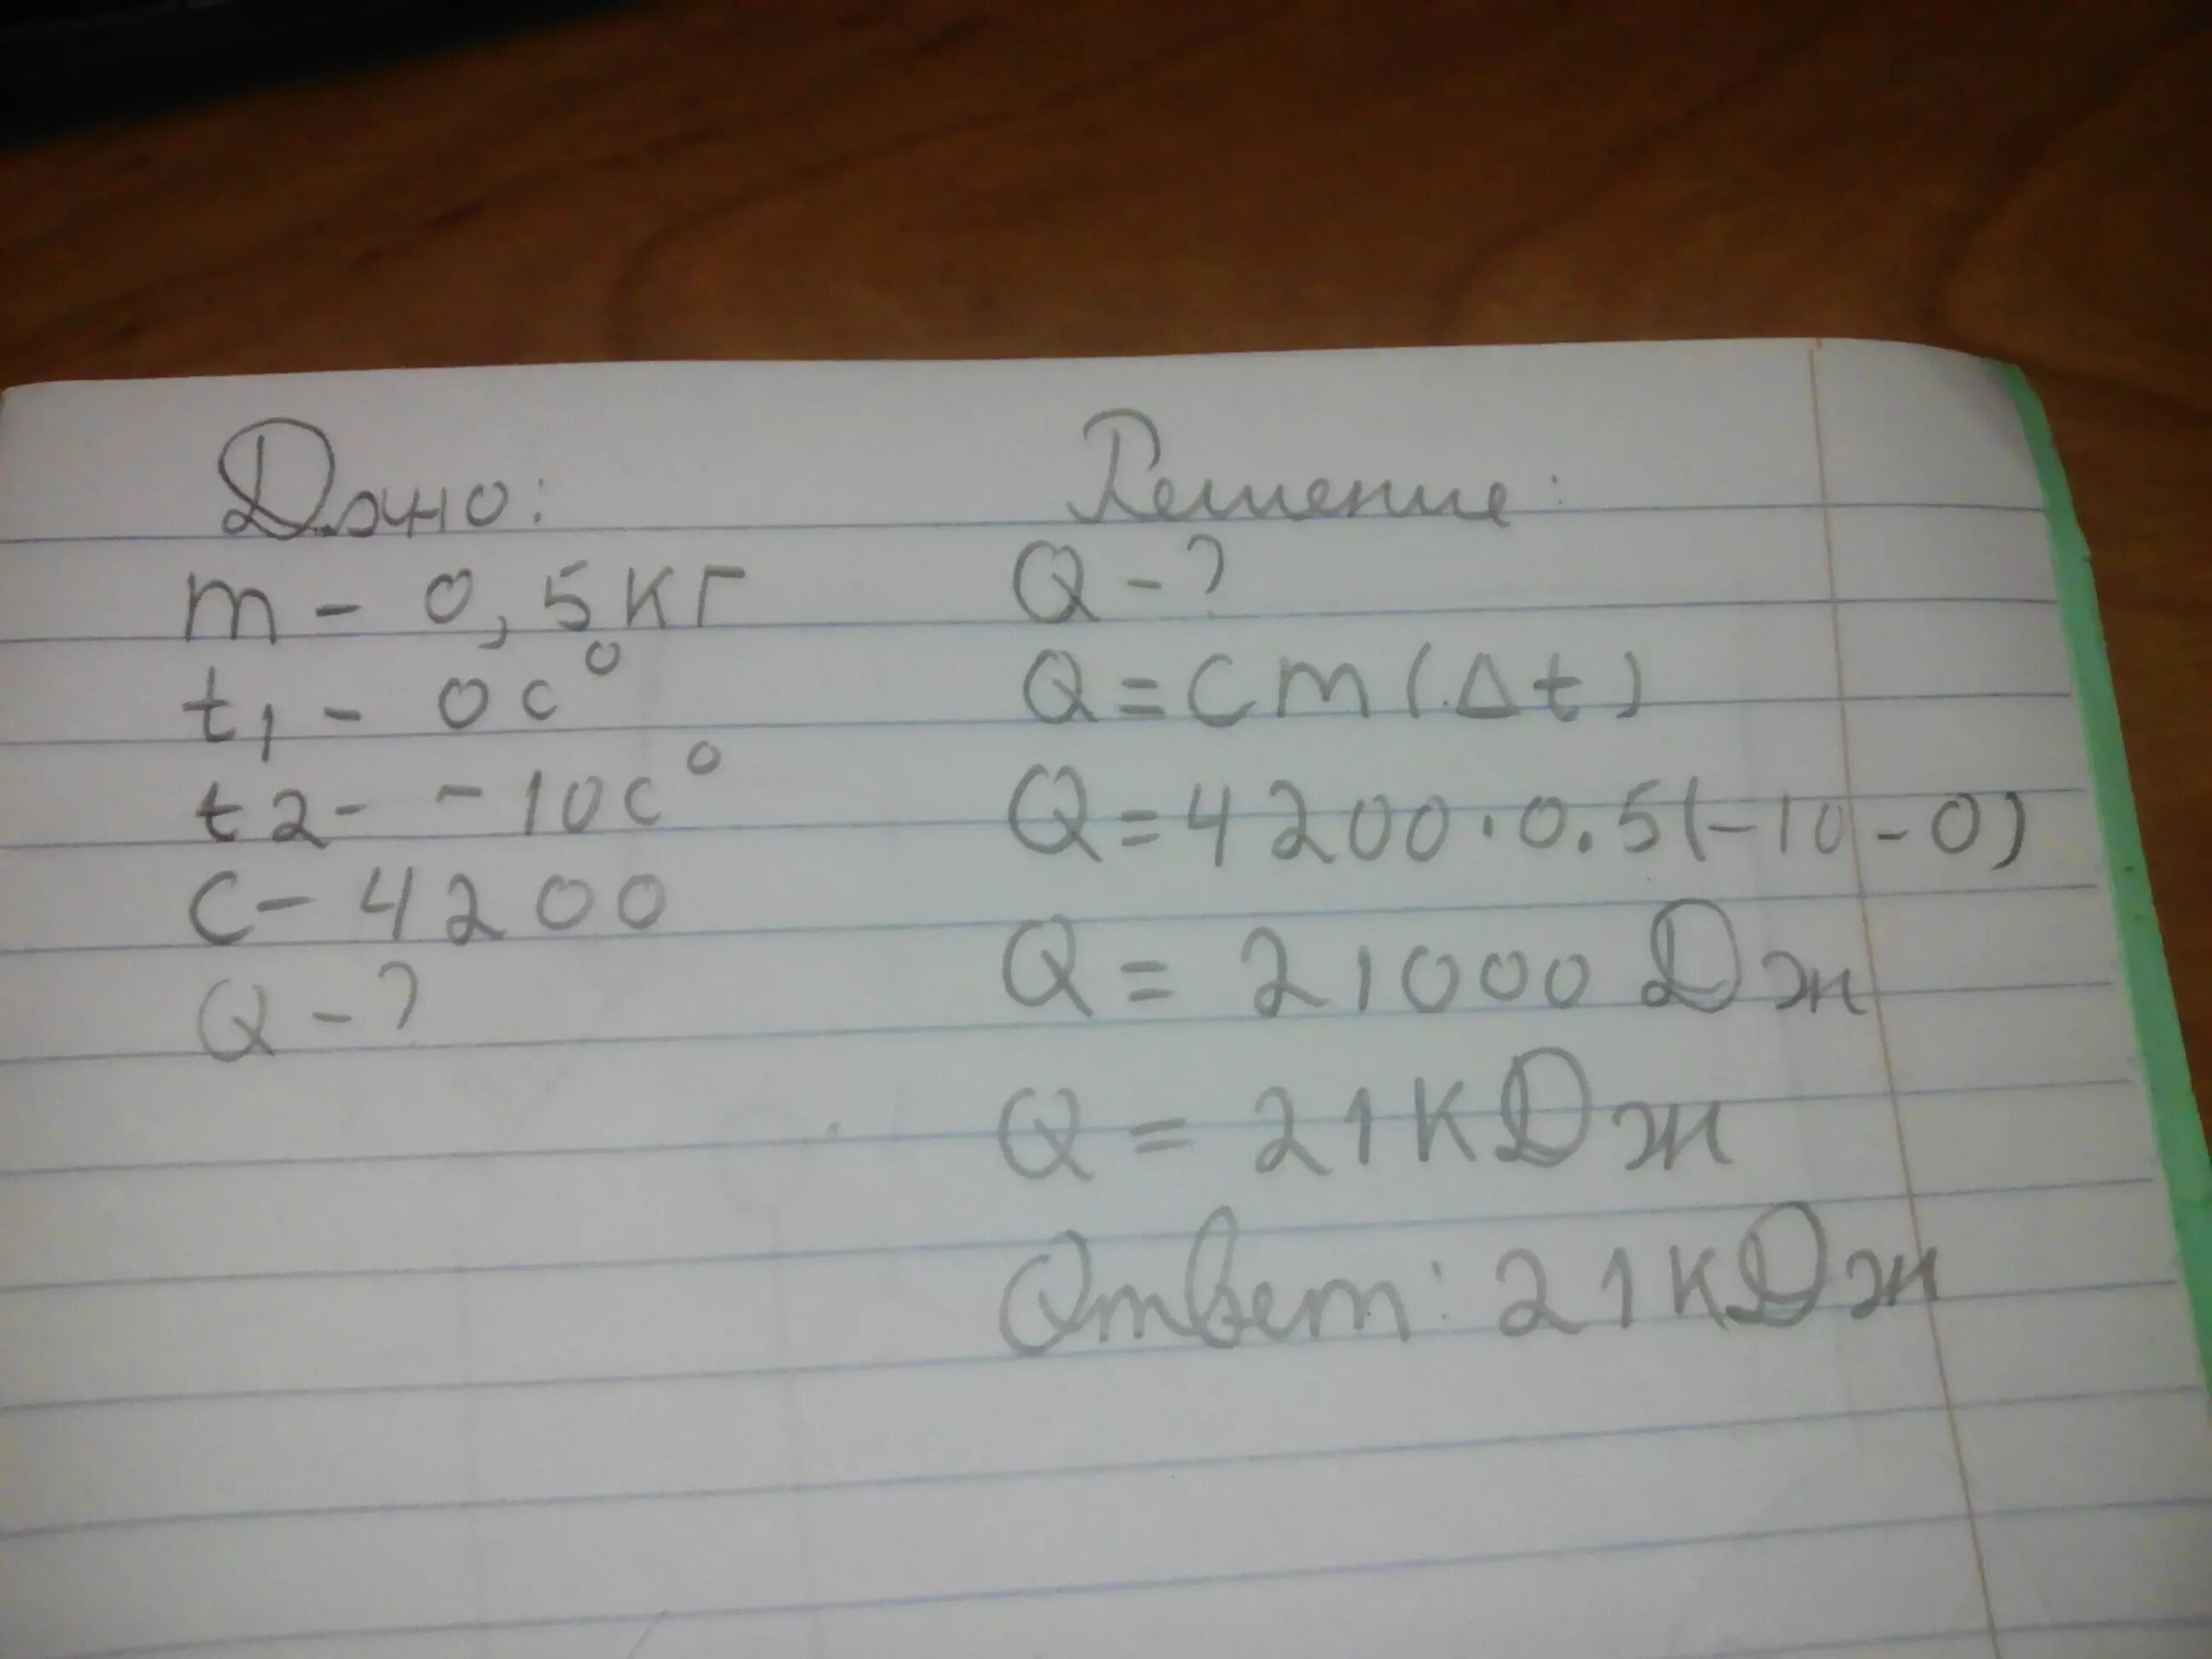 Дано:
m - 0,5кг
t1 - 0c°
t2 - -10c°
c - 4200
Q - ?
Решение:
Q - ?
Q = cm(Δt)
Q = 4200·0.5(-10-0)
Q = 21000 Дж
Q = 21кДж
Ответ: 21кДж